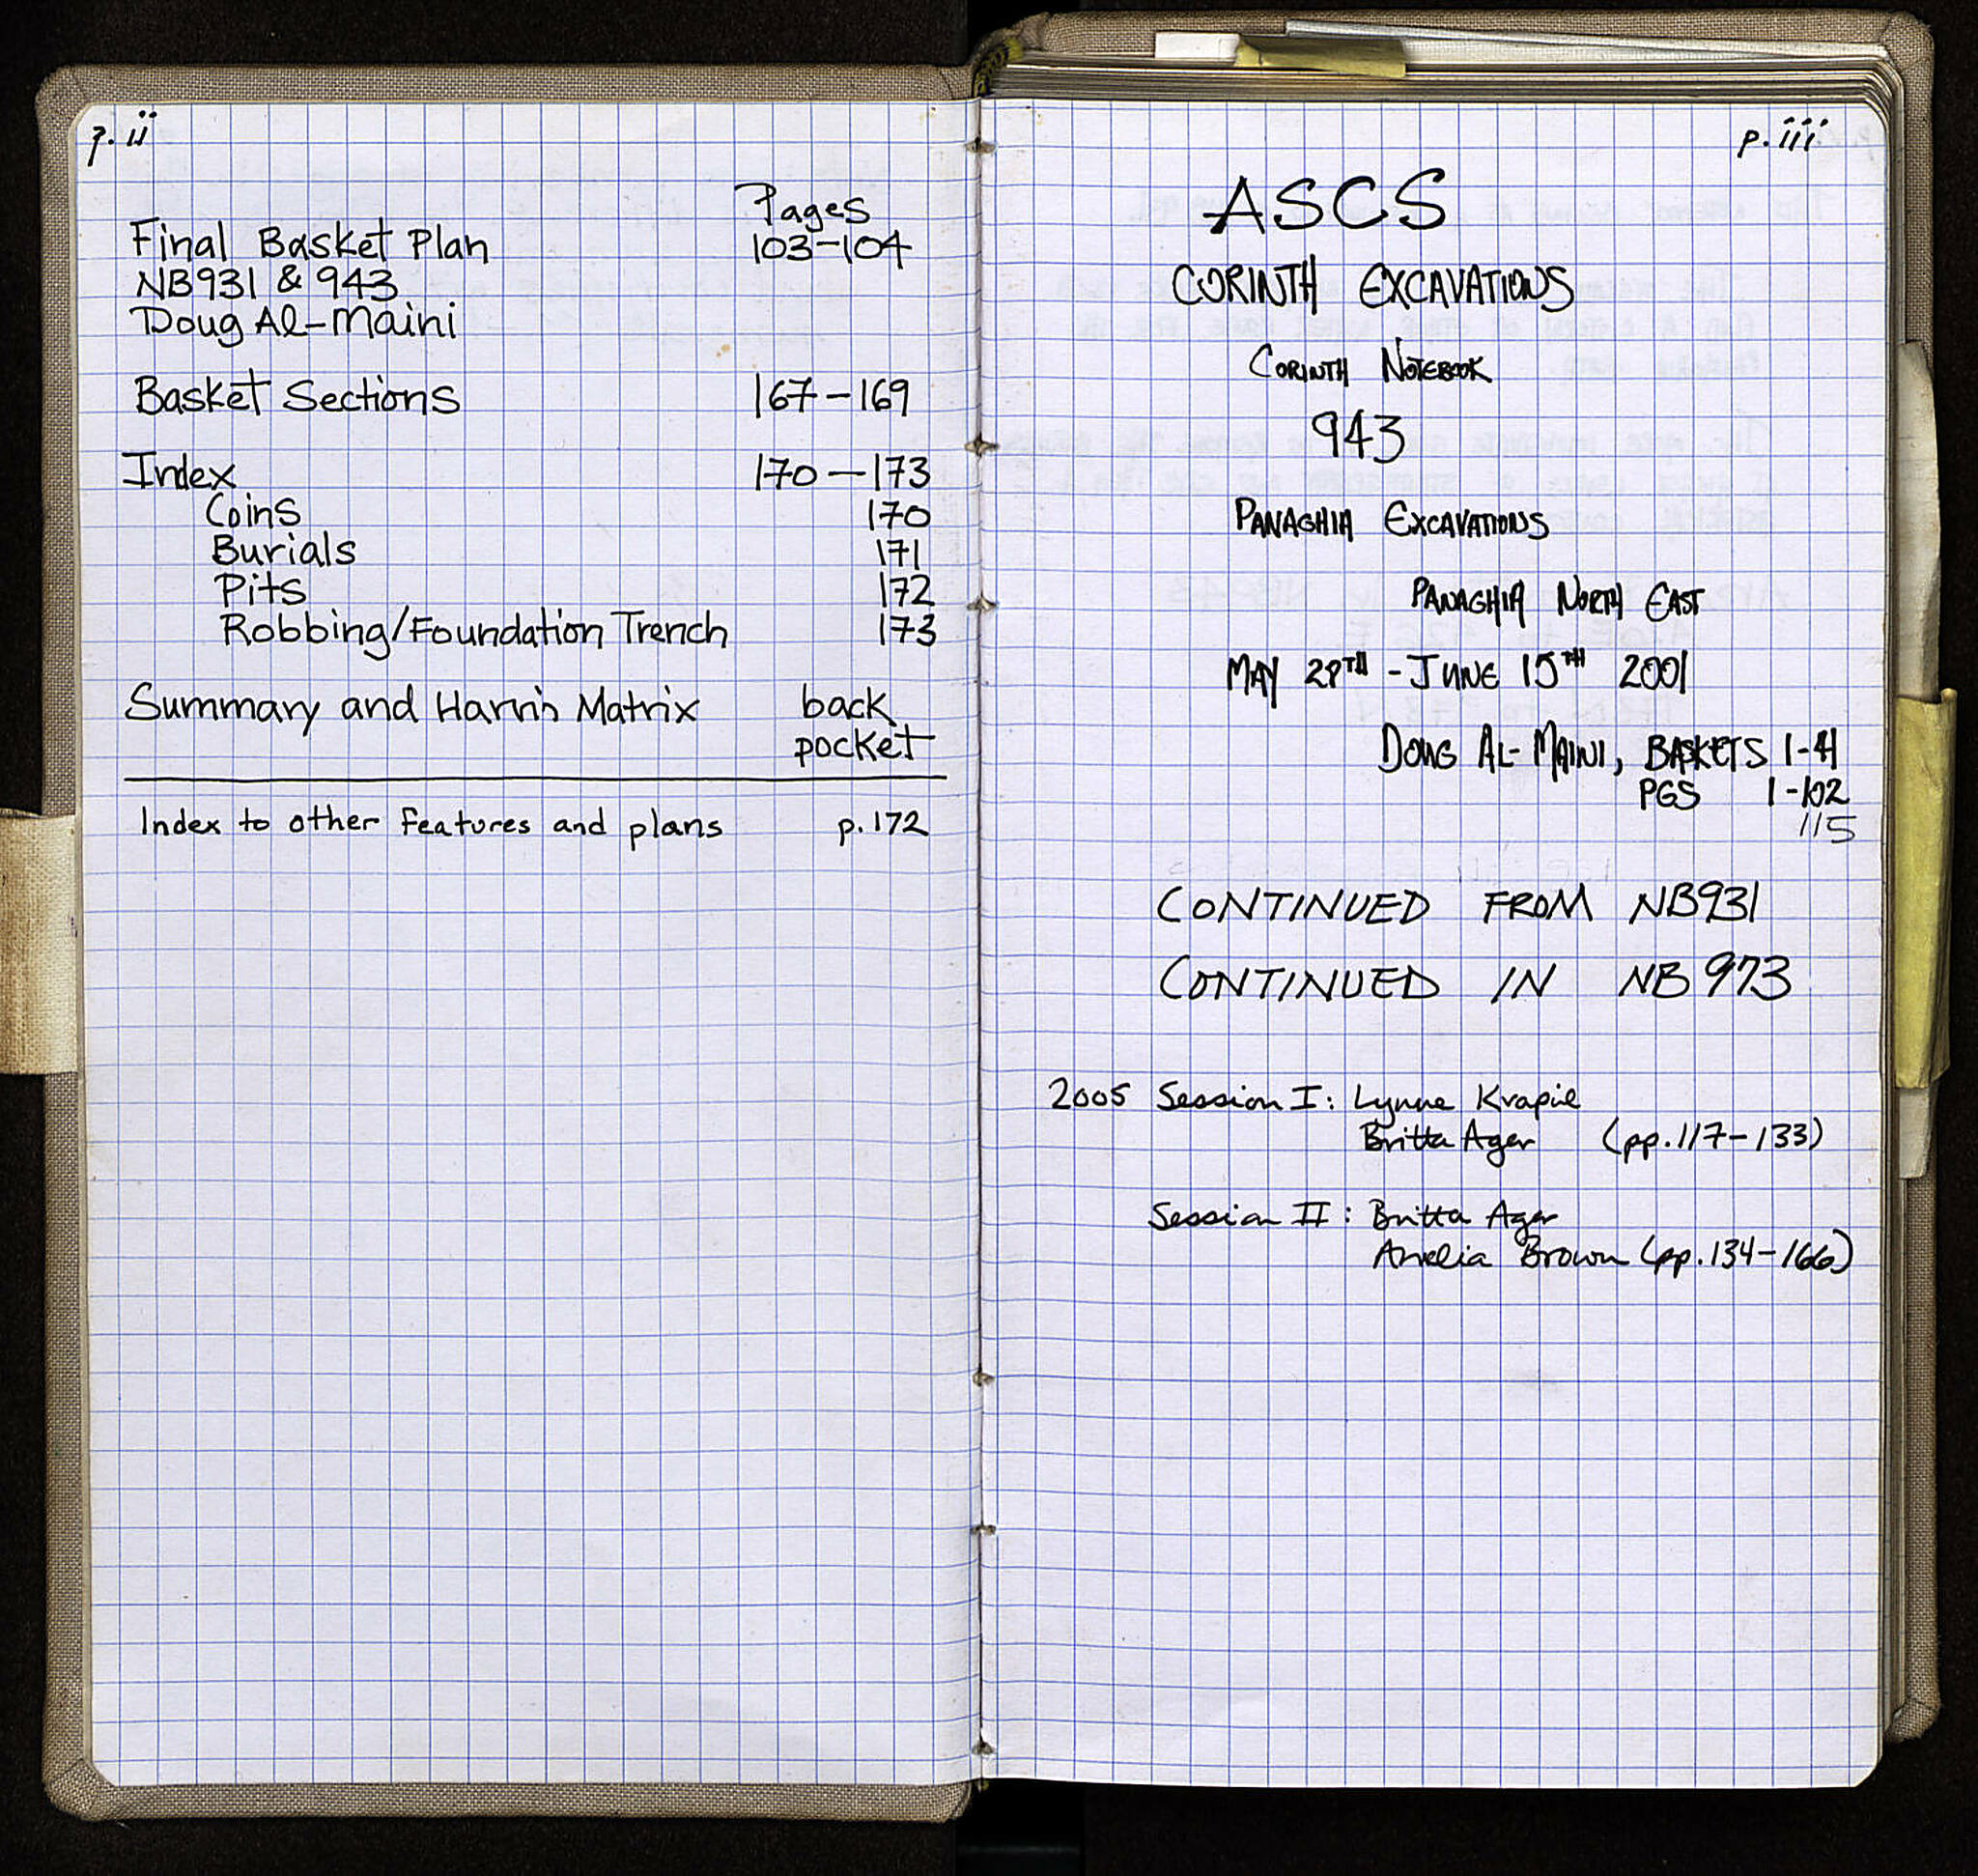 p. ii
Pages
Final Basket Plan 103-104
NB931 & 943
Doug Al-Maini
Basket Sections 167-169
Index 170-173
Coins 170
Burials 171
Pits 172
Robbing/Foundation Trench 173
Summary and Harris Matrix back
pocket
Index to other features and plans p. 172
p. iii
ASCS
CORINTH EXCAVATIONS
CORINTH NOTEBOOK
943
PANAGHIA EXCAVATIONS
PANAGHIA NORTH EAST
MAY 28TH - JUNE 15TH 2001
DOUG AL-MAINI, BASKETS 1-41
PGS 1-102
115
CONTINUED FROM NB931
CONTINUED IN NB 973
2005 Session I: Lynne
Britta Ager (pp. 117-133)
Session II: Britta Ager
Amelia Brown (pp. 134-166)